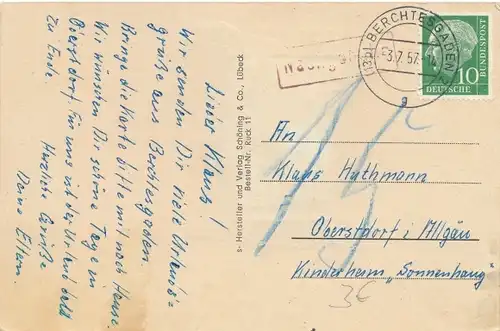 Lieber Klaus!
Wir senden Dir viele Urlaubs-
grüße aus Berchtesgaden
Bringe die Karte bitte mit nach Hause
Wir wünschen Dir schöne Tage in
Oberstdorf. Für uns ist der Urlaub bald
zu Ende.
Herzliche Grüße
Deine Eltern.
s- Hersteller und Verlag Schöning & Co., Lübeck
Bestell-Nr. Ruck 11
(13b) BERCHTESGADEN
-3.7.57.
g
10
DEUTSCHE
BUNDESPOST
An
Klaus Huthmann
Oberstdorf i. Allgäu
Kinderheim „Sonnenhang"
3€